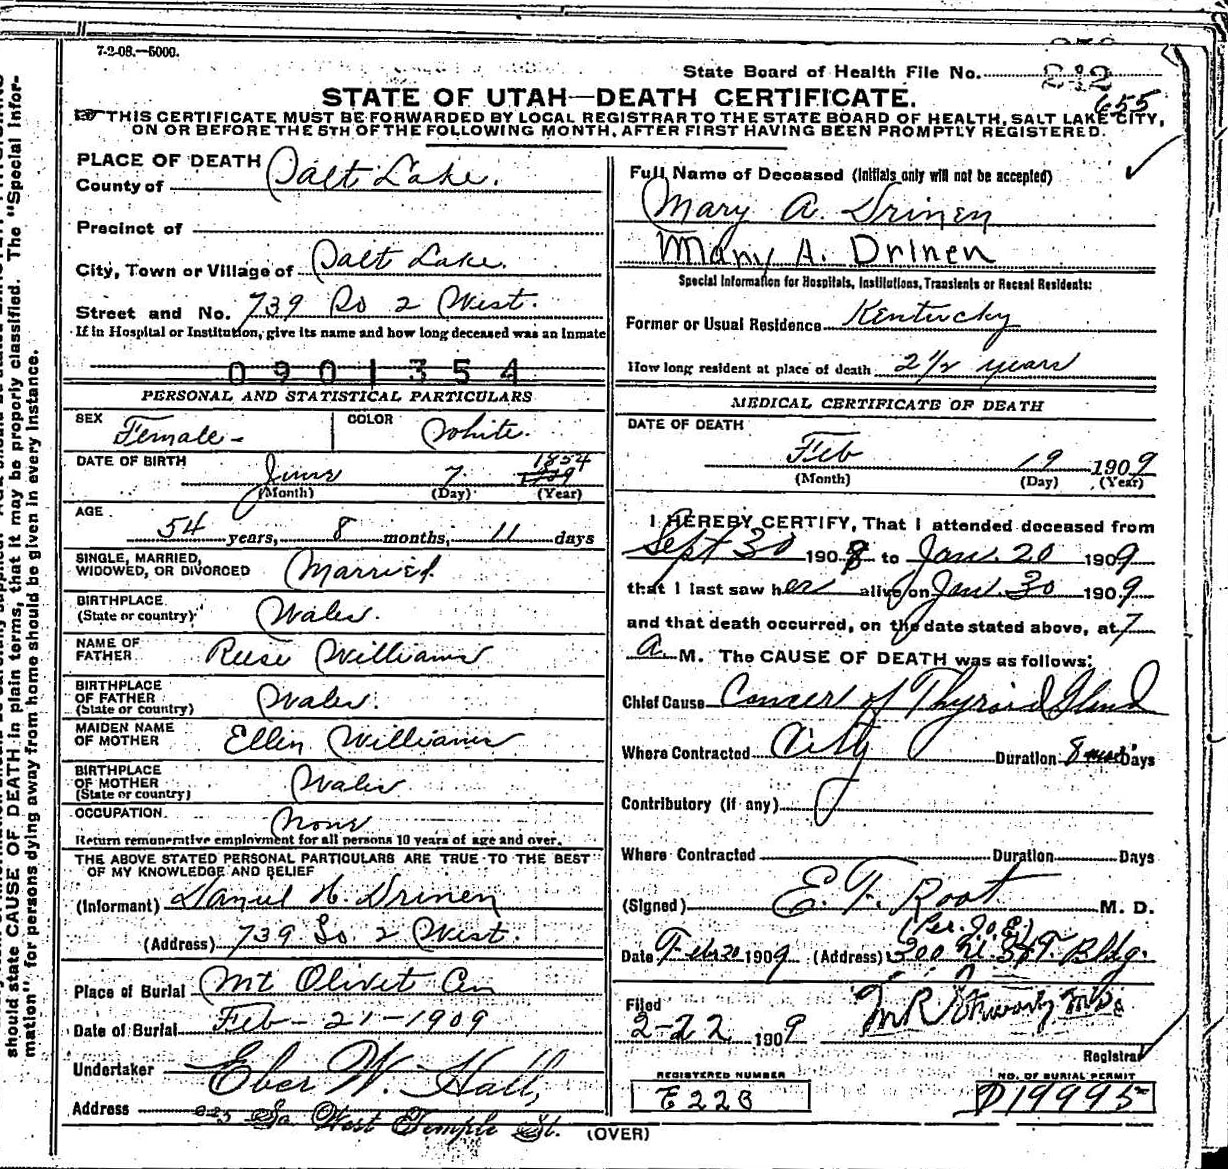 7-2-08.—5000.
State Board of Health File No. 242
655
STATE OF UTAH—DEATH CERTIFICATE.
THIS CERTIFICATE MUST BE FORWARDED BY LOCAL REGISTRAR TO THE STATE BOARD OF HEALTH, SALT LAKE CITY,
ON OR BEFORE THE 5TH OF THE FOLLOWING MONTH, AFTER FIRST HAVING BEEN PROMPTLY REGISTERED.
PLACE OF DEATH
County of Salt Lake.
Precinct of
City, Town or Village of Salt Lake.
Street and No. 739 So 2 West.
If in Hospital or Institution, give its name and how long deceased was an inmate
0901354
PERSONAL AND STATISTICAL PARTICULARS
SEX Female - COLOR White.
DATE OF BIRTH June 7 1854
(Month) (Day) (Year)
AGE
54 years, 8 months, 11 days
SINGLE, MARRIED,
WIDOWED, OR DIVORCED Married.
BIRTHPLACE
(State or country) Wales.
NAME OF
FATHER Reese Williams
BIRTHPLACE
OF FATHER
(State or country) Wales.
MAIDEN NAME
OF MOTHER Ellen Williams
BIRTHPLACE
OF MOTHER
(State or country) Wales
OCCUPATION. None
Return remunerative employment for all persons 10 years of age and over.
THE ABOVE STATED PERSONAL PARTICULARS ARE TRUE TO THE BEST
OF MY KNOWLEDGE AND BELIEF
(Informant) Daniel H. Drinen
(Address) 739 So. 2 West.
Place of Burial Mt Olivet Cem
Date of Burial Feb - 21 - 1909
Undertaker Eber W. Hall,
Address So West Temple St.
Full Name of Deceased (Initials only will not be accepted)
Mary A Drinen
Mary A. Drinen
Special Information for Hospitals, Institutions, Transients or Recent Residents:
Former or Usual Residence Kentucky
How long resident at place of death 2 1/2 years
MEDICAL CERTIFICATE OF DEATH
DATE OF DEATH
Feb 19 1909
(Month) (Day) (Year)
I HEREBY CERTIFY, That I attended deceased from
Sept 30 1908 to Jan. 20 1909
that I last saw her alive on Jan. 30 1909
and that death occurred, on the date stated above, at 7
A. M. The CAUSE OF DEATH was as follows:
Chief Cause Cancer of Thyroid Gland
Where Contracted City Duration 8 Days
Contributory (if any)
Where Contracted Duration Days
(Signed) E. F. Root M. D.
(Per. J.O.E.)
Date Feb 20 1909 (Address) Bldg.
Filed
2-22 1909
Registrar
REGISTERED NUMBER
E 228
NO. OF BURIAL PERMIT
D19995
(OVER)
should state CAUSE OF DEATH in plain terms, that it may be properly classified. The "Special Infor-
mation" for persons dying away from home should be given in every instance.